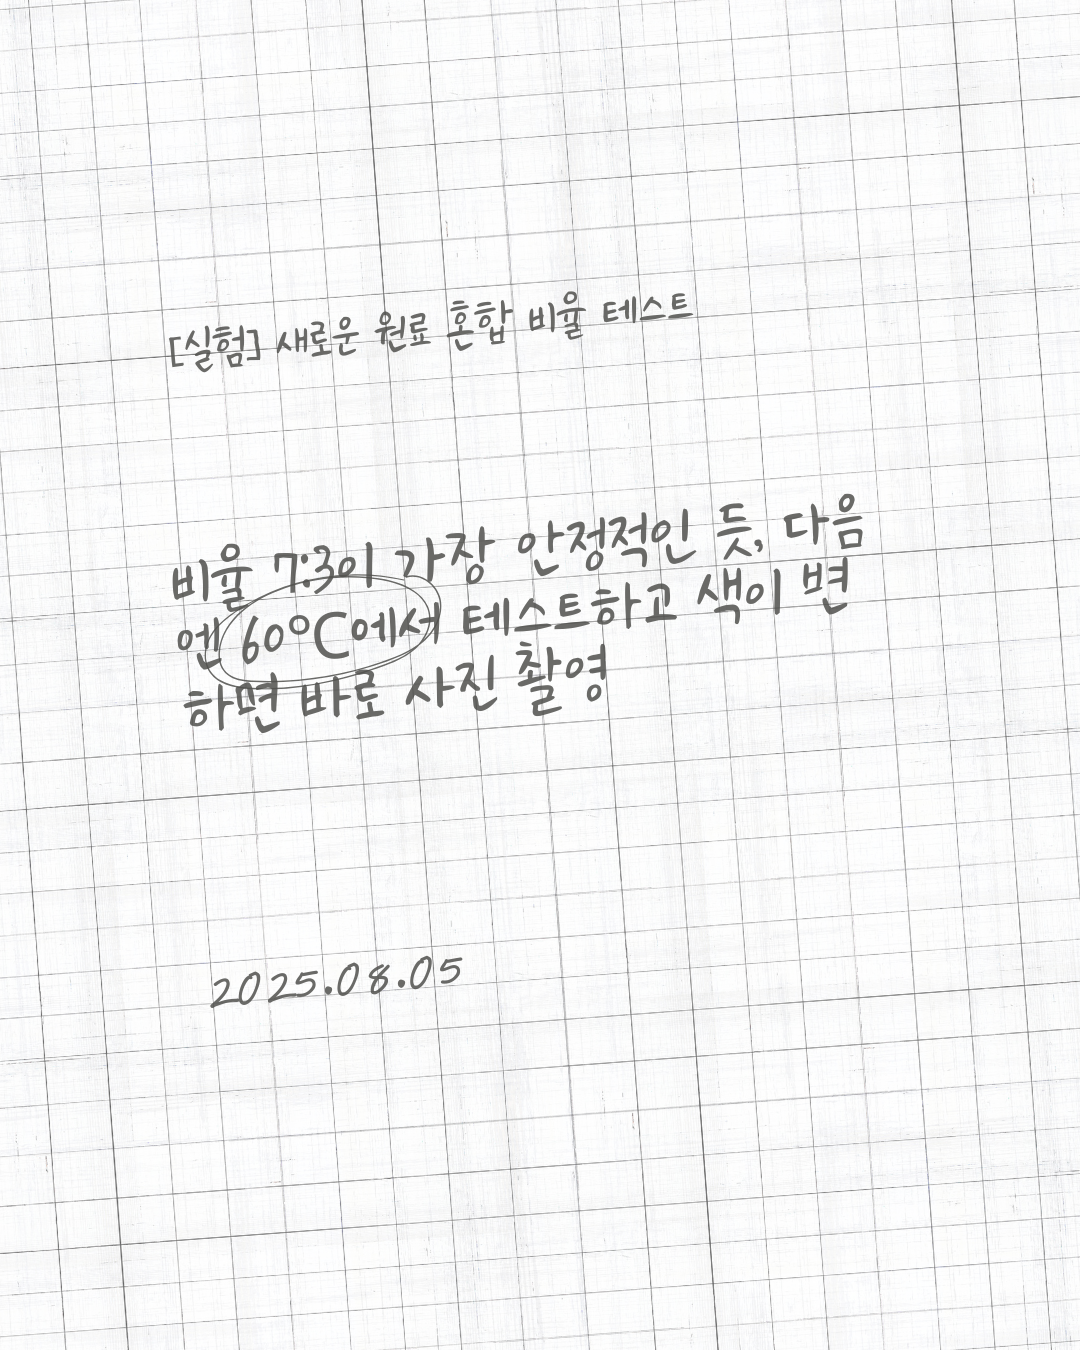 [실험] 새로운 원료 혼합 비율 테스트
비율 7:3이 가장 안정적인 듯, 다음
엔 60°C에서 테스트하고 색이 변
하면 바로 사진 촬영
2025.08.05